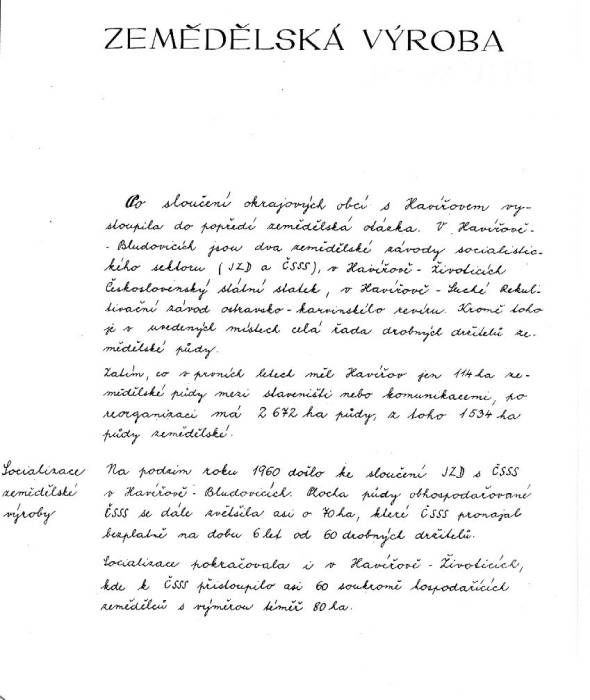 ZEMĚDĚLSKÁ VÝROBA
Po sloučení okrajových obcí s Havířovem vy-
stoupila do popředí zemědělská otázka. V Havířově-
-Bludovicích jsou dva zemědělské závody socialistic-
kého sektoru (JZD a ČSSS), v Havířově-Životicích
Československý státní statek, v Havířově-Suché Rekul-
tivační závod ostravsko-karvinského revíru. Kromě toho
je v uvedených místech celá řada drobných držitelů ze-
mědělské půdy.
Zatím, co v prvních letech měl Havířov jen 114 ha ze-
mědělské půdy mezi staveništi nebo komunikacemi, po
reorganizaci má 2 672 ha půdy, z toho 1534 ha
půdy zemědělské.
Socializace
zemědělské
výroby
Na podzim roku 1960 došlo ke sloučení JZD s ČSSS
v Havířově-Bludovicích. Plocha půdy obhospodařované
ČSSS se dále zvětšila asi o 70 ha, které ČSSS pronajal
bezplatně na dobu 6 let od 60 drobných držitelů.
Socializace pokračovala i v Havířově-Životicích,
kde k ČSSS přistoupilo asi 60 soukromě hospodařících
zemědělců s výměrou téměř 80 ha.